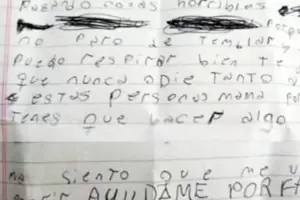 cosas horribles
no paro de temblar y
puedo respirar bien te
que nunca odie tanto a
estas personas mama
tenes que hacer algo
siento que me
AYUDAME POR F